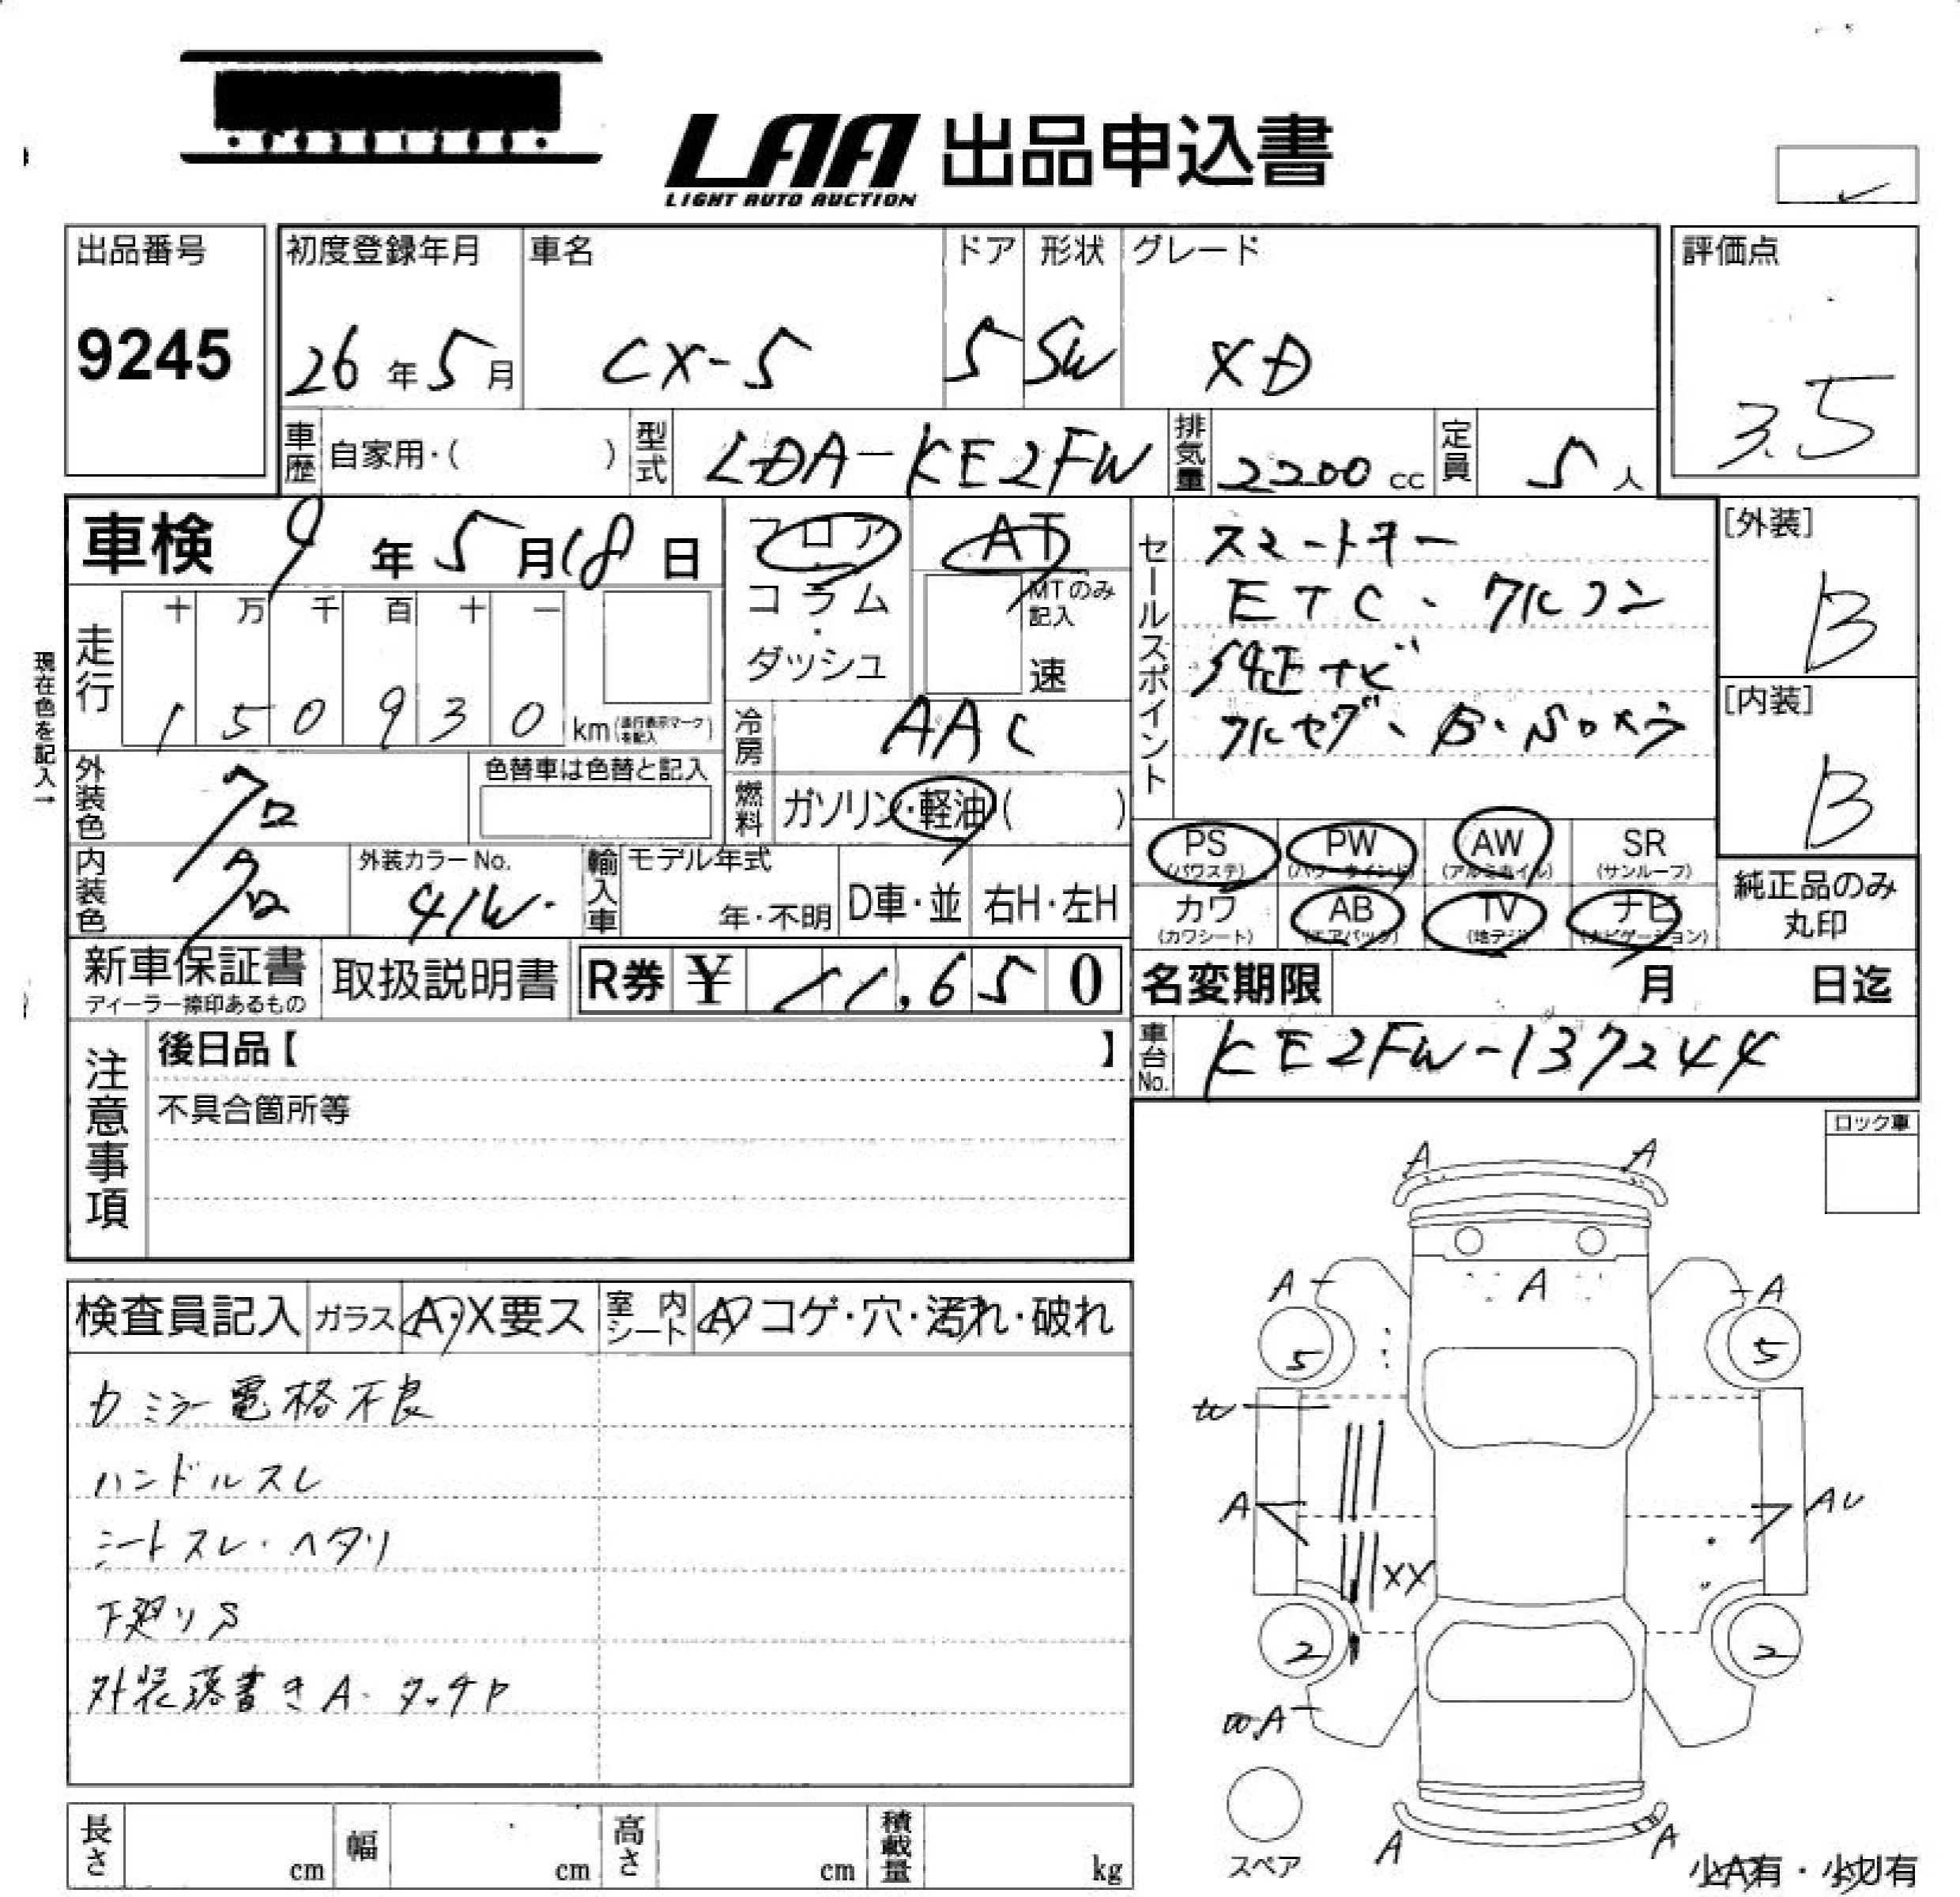 LAA 出品申込書
LIGHT AUTO AUCTION
出品番号
9245
初度登録年月 車名 ドア 形状 グレード
26年5月 CX-5 5 SW XD
評価点
3.5
車歴 自家用・( ) 型式 LDA-KE2FW 排気量 2200cc 定員 5人
車検 9年5月18日
フロア AT
コラム・ダッシュ
MTのみ記入
速
セールスポイント
スマートキー
ETC、フルフラ
純正ナビ
フルセグ、B・Sカメラ
[外装]
B
[内装]
B
現在色を記入→
走行 十 万 千 百 十 一
1 5 0 9 3 0 km(走行表示マークを記入)
冷房 AAC
外装色 クロ
色替車は色替と記入
燃料 ガソリン・軽油( )
内装色 クロ
外装カラーNo.
41W.
輸入車 モデル年式 年・不明 D車・並 右H・左H
PS (パワステ) PW (パワーウインド) AW (アルミホイル) SR (サンルーフ)
カワ (カワシート) AB (エアバック) TV (地デジ) ナビ (ナビゲーション)
純正品のみ丸印
新車保証書
ディーラー捺印あるもの
取扱説明書
R券 ¥ 11,650
名変期限 月 日迄
車台No. KE2FW-137244
注意事項
後日品【 】
不具合箇所等
ロック車
検査員記入 ガラス A・X要ス 室内シート A コゲ・穴・汚れ・破れ
カミラー電格不良
ハンドルスレ
シートスレ・ヘタリ
下廻りS
外装落書きA・タッチP
A A
A A A
5 5
W
A AU
XX
2 2
A
スペア
A A
少A有・少U有
長さ cm 幅 cm 高さ cm 積載量 kg